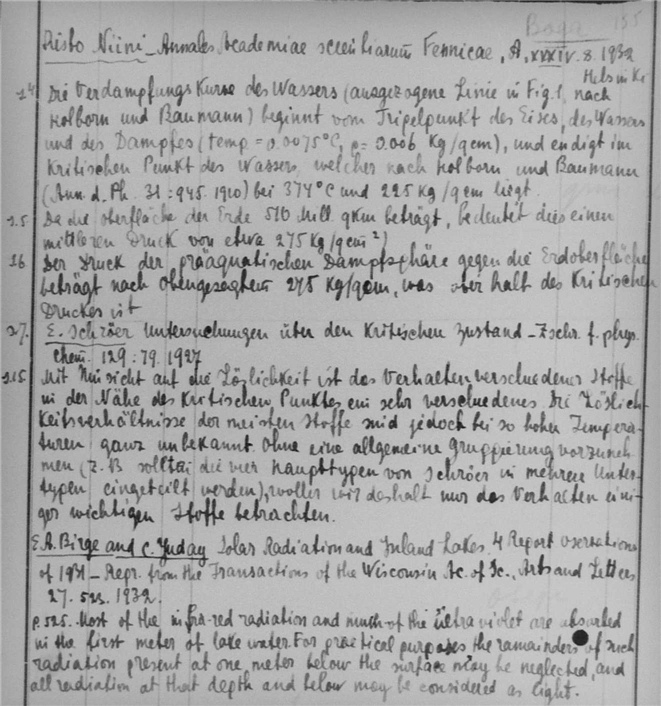 Boga 155
Risto Niini – Annales Academiae scientiarum Fennicae, A, XXXIV. 8. 1932
Helsinki
14 Die Verdampfungskurve des Wassers (ausgezogene Linie in Fig. 1, nach
Holborn und Baumann) beginnt vom Tripelpunkt des Eises, des Wassers
und des Dampfes (temp = 0.0075°C, p = 0.006 Kg/qcm), und endigt im
Kritischen Punkt des Wassers, welcher nach Holborn und Baumann
(Ann. d. Ph. 31 : 945. 1910) bei 374°C und 225 kg/qcm liegt.
15 Da die Oberfläche der Erde 510 Mill qkm beträgt, bedeutet dies einen
mittleren Druck von etwa 275 Kg/qcm²)
16 Der Druck der präaquatischen Dampfsphäre gegen die Erdoberfläche
beträgt nach obengesagtem 275 Kg/qcm, was oberhalb des Kritischen
Druckes ist
27. E. Schröer Untersuchungen über den Kritischen Zustand – Zschr. f. phys.
Chem. 129 : 79. 1927
Mit Hinsicht auf die Löslichkeit ist das Verhalten verschiedener Stoffe
in der Nähe des Kritischen Punktes ein sehr verschiedenes. Die Löslich
Keitsverhältnisse der meisten Stoffe sind jedoch bei so hohen Tempera-
turen ganz unbekannt. Ohne eine allgemeine Gruppierung vorzuneh
men (z. B sollten die vier Haupttypen von Schröer in mehrere Unter-
typen eingeteilt werden), wollen wir deshalb nur das Verhalten eini-
ger wichtigen Stoffe betrachten.
E. A. Birge and C. Juday Solar Radiation and Inland Lakes. 4 Report oservations
of 1931 – Repr. from the Transactions of the Wisconsin Ac. of Sc., Arts and Letters
27. 523. 1932.
p. 525. Most of the infra-red radiation and much of the ultra violet are absorbed
in the first meter of lake water. For practical purposes the remainders of such
radiation present at one meter below the surface may be neglected, and
all radiation at that depth and below may be considered as light.